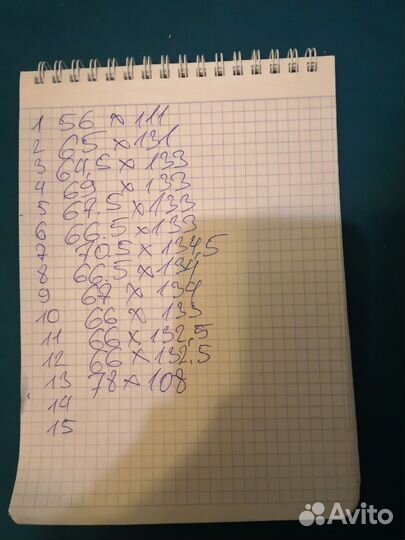 1 56 x 111
2 65 x 131
3 64,5 x 133
4 69 x 133
5 67.5 x 133
6 66.5 x 133
7 70.5 x 134,5
8 66.5 x 134
9 67 x 134
10 66 x 133
11 66 x 132,5
12 66 x 132.5
13 78 x 108
14
15
Avito